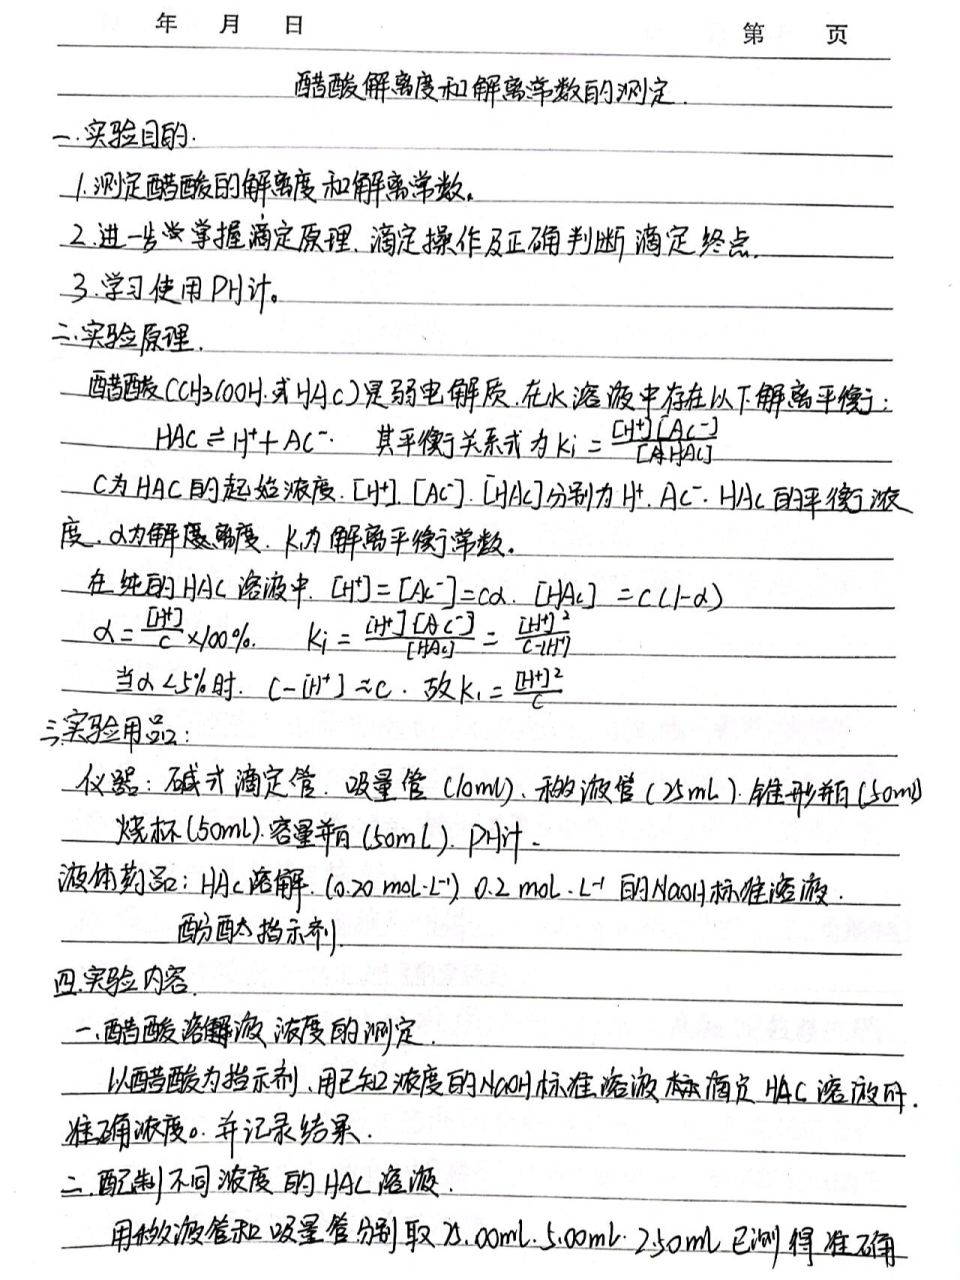 年 月 日
第 页
醋酸解离度和解离常数的测定.
一.实验目的.
1.测定醋酸的解离度和解离常数。
2.进一步掌握滴定原理.滴定操作及正确判断滴定终点.
3.学习使用PH计。
二.实验原理.
醋酸(CH3COOH.或HAc)是弱电解质.在水溶液中存在以下解离平衡:
HAC ⇌ H⁺ + AC⁻. 其平衡关系式为 Ki = [H⁺][AC⁻]/[HAc]
C为HAC的起始浓度.[H⁺].[AC⁻].[HAC]分别为H⁺.AC⁻.HAc的平衡浓
度.α为解离度.Ki为解离平衡常数。
在纯的HAC溶液中.[H⁺]=[Ac⁻]=cα.[HAc]=C(1-α)
α = [H⁺]/C ×100%. Ki = [H⁺][AC⁻]/[HAc] = [H⁺]²/C-[H⁺]
当α<5%时.C-[H⁺]≈C.故Ki = [H⁺]²/C
三.实验用品:
仪器:碱式滴定管.吸量管(10ml).移液管(25mL).锥形瓶(50ml)
烧杯(50ml).容量瓶(50mL).PH计.
液体药品:HAc溶解.(0.20 mol·L⁻¹).0.2 mol·L⁻¹的NaOH标准溶液.
酚酞指示剂.
四.实验内容.
一.醋酸溶液浓度的测定.
以醋酸为指示剂.用已知浓度的NaOH标准溶液滴定HAC溶液的.
准确浓度。并记录结果.
二.配制不同浓度的HAC溶液.
用移液管和吸量管分别取25.00ml.5.00ml.2.50ml已测得准确